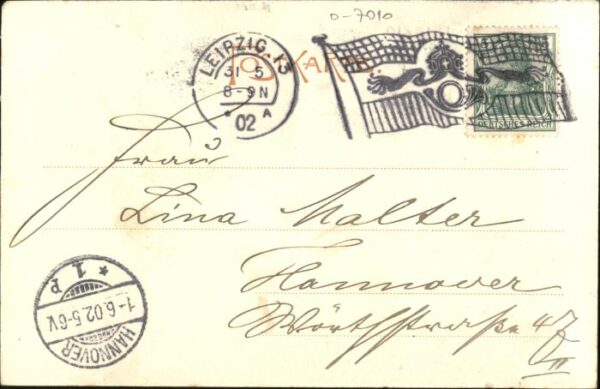 0-7010
POSTKARTE
LEIPZIG.13
31 5
8-9N
* 02 A
DEUTSCHES REICH
Frau
Lina Malter
Hannover
Wörthstraße 47
III
* 1 P
1-6.02.5-6V
HANNOVER